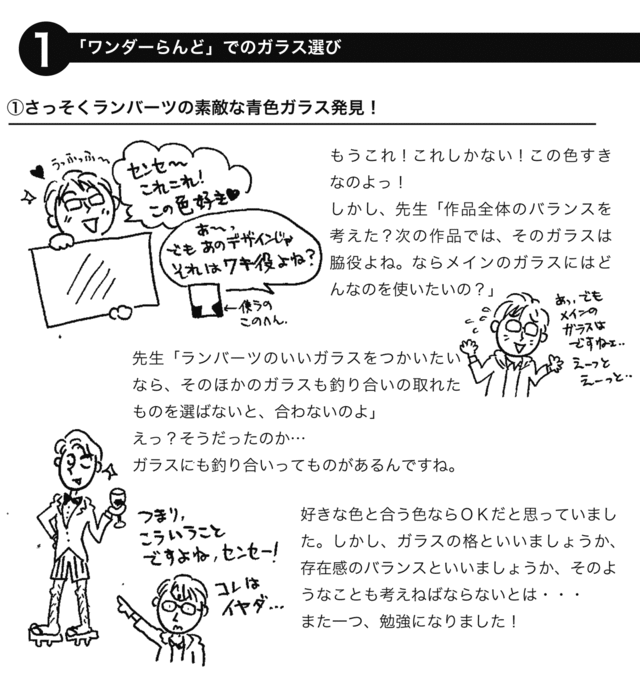 1 「ワンダーらんど」でのガラス選び
①さっそくランバーツの素敵な青色ガラス発見！
うっふっふ〜
センセ〜
これこれ！
この色好き♥
あ〜、
でも あのデザインじゃ
それはワキ役よね？
←使うの
このへん.
もうこれ！これしかない！この色すき
なのよっ！
しかし、先生「作品全体のバランスを
考えた？次の作品では、そのガラスは
脇役よね。ならメインのガラスにはど
んなのを使いたいの？」
あっ、でも
メインの
ガラスは
ですねェ..
えーっと
えーっと..
先生「ランバーツのいいガラスをつかいたい
なら、そのほかのガラスも釣り合いの取れた
ものを選ばないと、合わないのよ」
えっ？そうだったのか…
ガラスにも釣り合いってものがあるんですね。
つまり,
こういうこと
ですよね,センセー!
コレは
イヤダ...
好きな色と合う色ならＯＫだと思っていまし
た。しかし、ガラスの格といいましょうか、
存在感のバランスといいましょうか、そのよ
うなことも考えねばならないとは・・・
また一つ、勉強になりました！